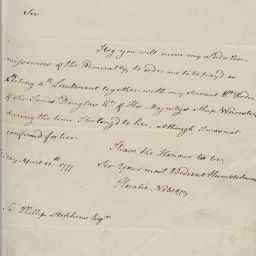 Sir
I Beg you will move my Lords Com-
missioners of the Admiralty, to order me to be paid as
Acting 4th Lieutenant together with my Servant Wm
of Sir James Douglas Kt of His Majestys Ship Worcester
during the time I belong'd to her, although I was not
confirmed for her.
I have the Honour to be
Sir Your most Obedient Humble Servant
Horatio Nelson
Friday April 11th 1777
To Phillip Stephens Esqr